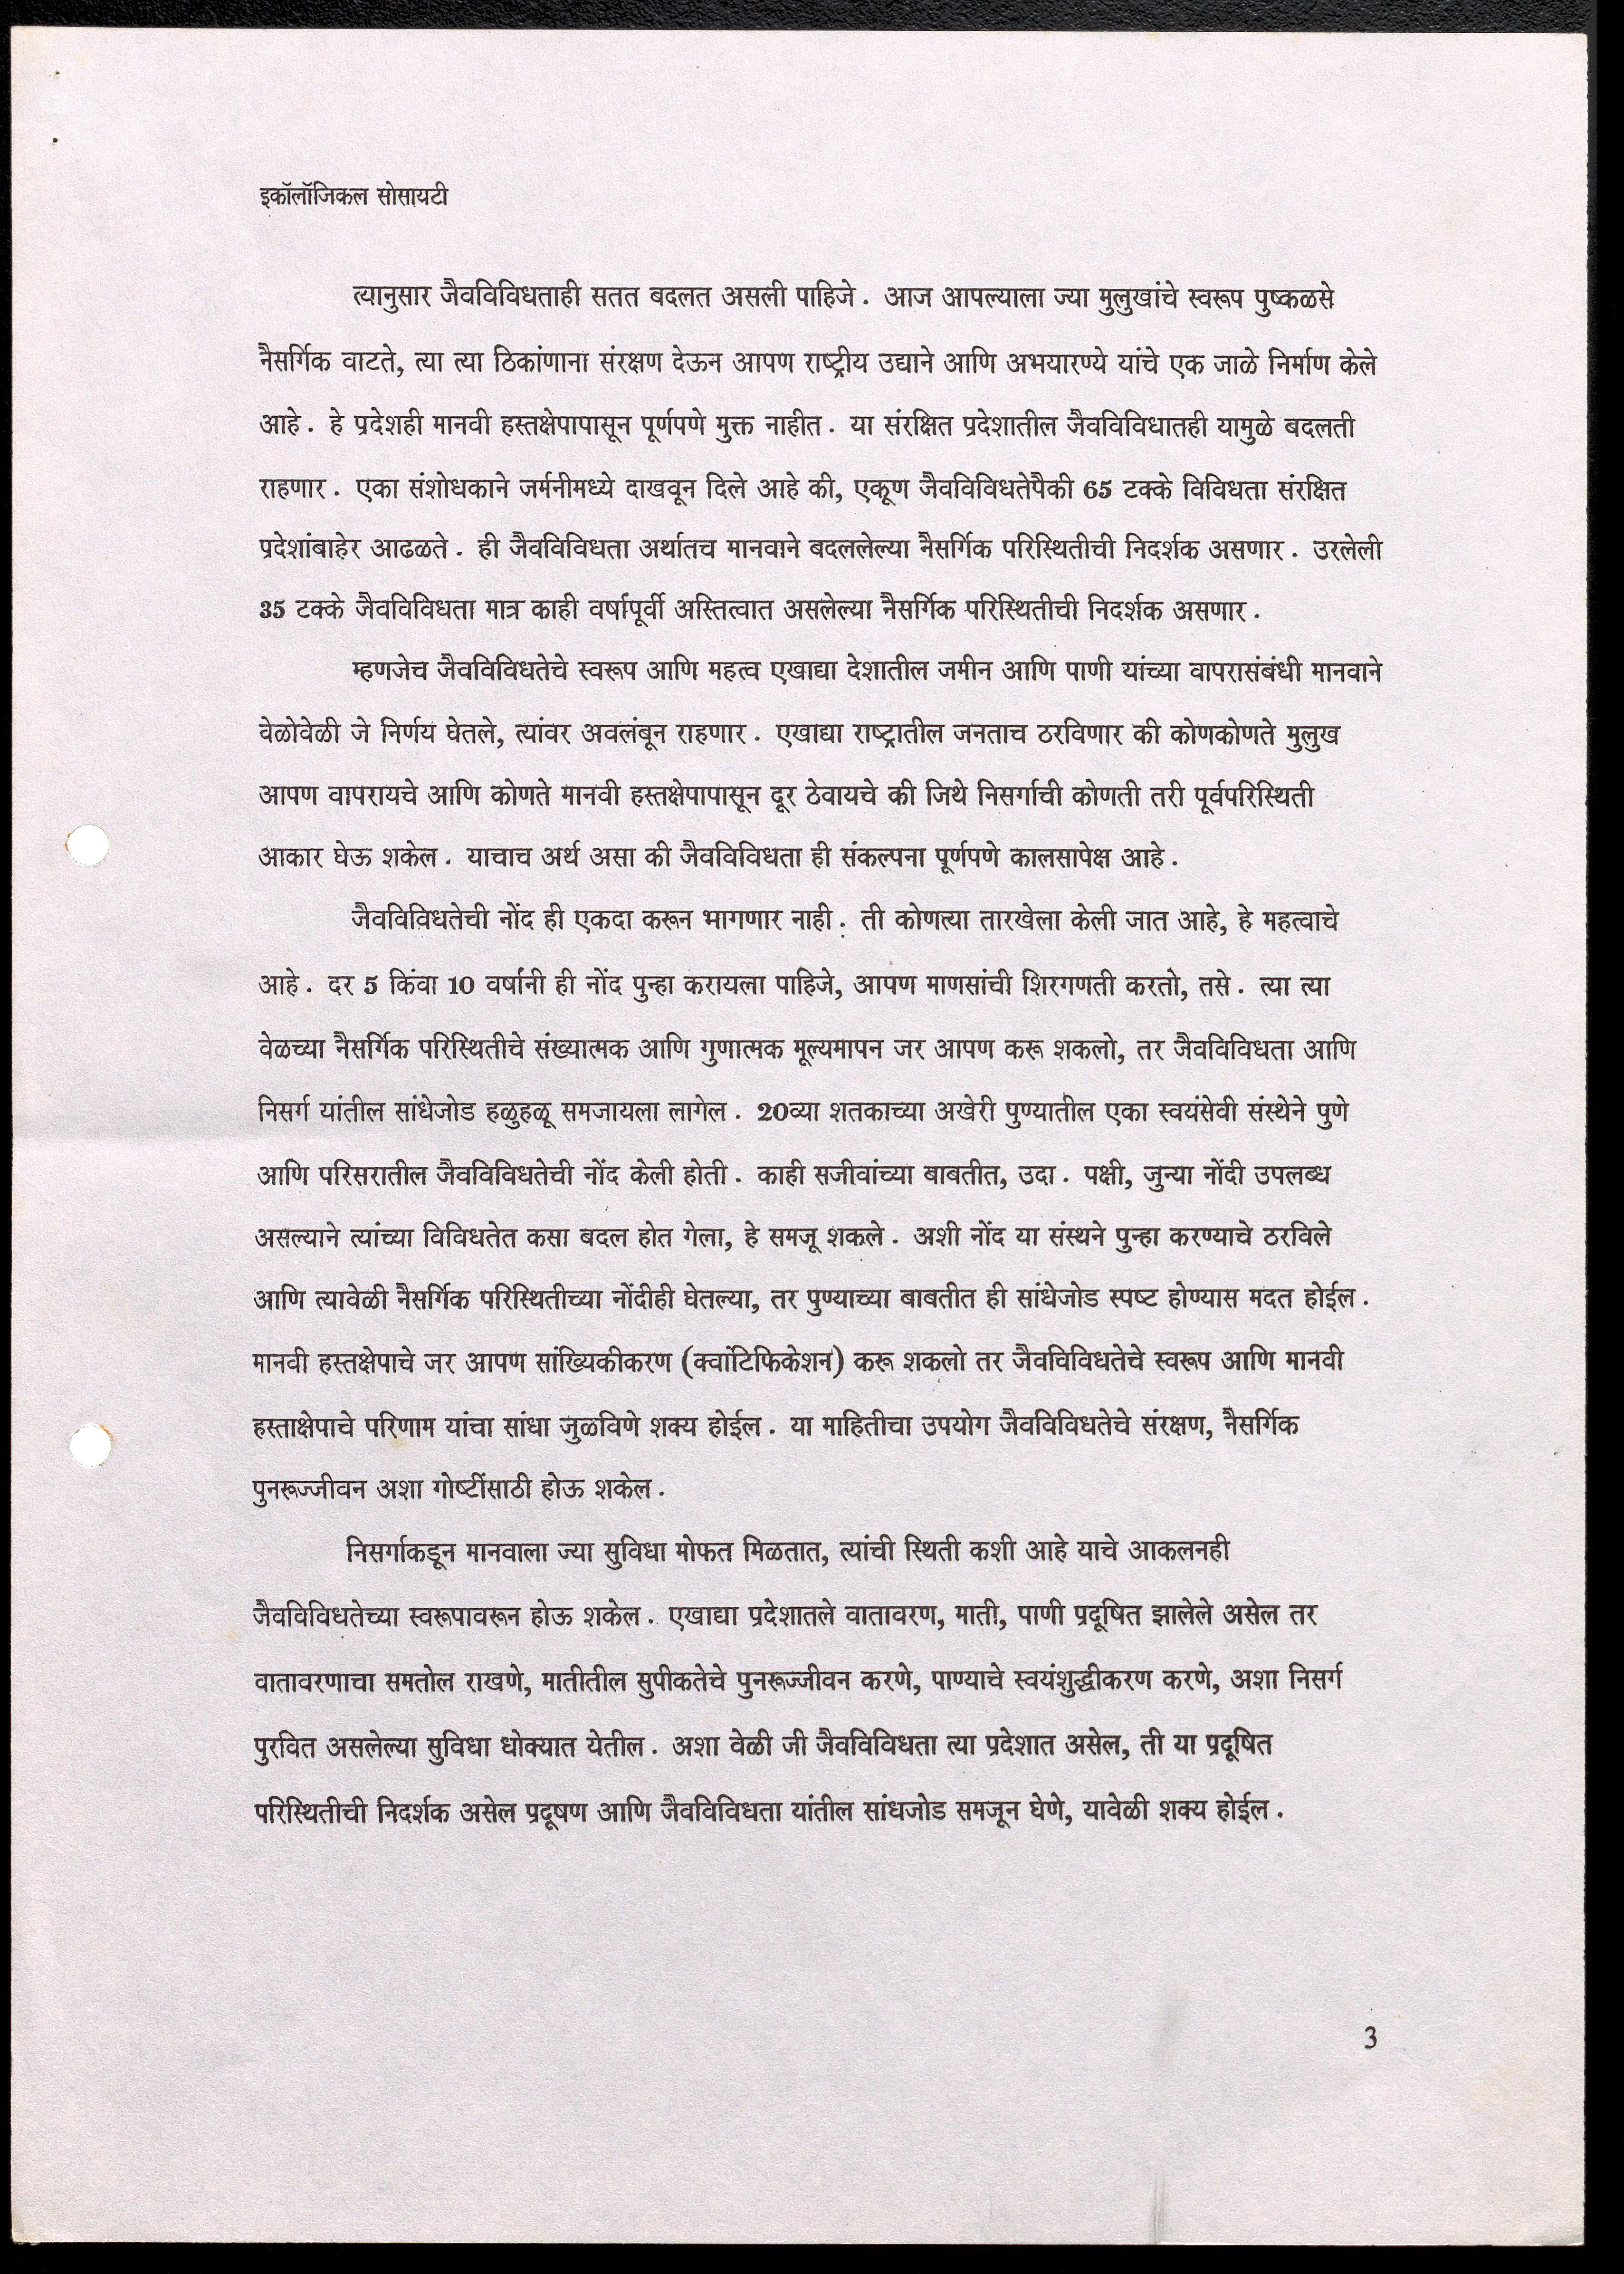 इकॉलॉजिकल सोसायटी
त्यानुसार जैवविविधताही सतत बदलत असली पाहिजे. आज आपल्याला ज्या मुलुखांचे स्वरूप पुष्कळसे
नैसर्गिक वाटते, त्या त्या ठिकांणाना संरक्षण देऊन आपण राष्ट्रीय उद्याने आणि अभयारण्ये यांचे एक जाळे निर्माण केले
आहे. हे प्रदेशही मानवी हस्तक्षेपापासून पूर्णपणे मुक्त नाहीत. या संरक्षित प्रदेशातील जैवविविधातही यामुळे बदलती
राहणार. एका संशोधकाने जर्मनीमध्ये दाखवून दिले आहे की, एकूण जैवविविधतेपैकी 65 टक्के विविधता संरक्षित
प्रदेशांबाहेर आढळते. ही जैवविविधता अर्थातच मानवाने बदललेल्या नैसर्गिक परिस्थितीची निदर्शक असणार. उरलेली
35 टक्के जैवविविधता मात्र काही वर्षापूर्वी अस्तित्वात असलेल्या नैसर्गिक परिस्थितीची निदर्शक असणार.
म्हणजेच जैवविविधतेचे स्वरूप आणि महत्व एखाद्या देशातील जमीन आणि पाणी यांच्या वापरासंबंधी मानवाने
वेळोवेळी जे निर्णय घेतले, त्यांवर अवलंबून राहणार. एखाद्या राष्ट्रातील जनताच ठरविणार की कोणकोणते मुलुख
आपण वापरायचे आणि कोणते मानवी हस्तक्षेपापासून दूर ठेवायचे की जिथे निसर्गाची कोणती तरी पूर्वपरिस्थिती
आकार घेऊ शकेल. याचाच अर्थ असा की जैवविविधता ही संकल्पना पूर्णपणे कालसापेक्ष आहे.
जैवविविधतेची नोंद ही एकदा करून भागणार नाही. ती कोणत्या तारखेला केली जात आहे, हे महत्वाचे
आहे. दर 5 किंवा 10 वर्षांनी ही नोंद पुन्हा करायला पाहिजे, आपण माणसांची शिरगणती करतो, तसे. त्या त्या
वेळच्या नैसर्गिक परिस्थितीचे संख्यात्मक आणि गुणात्मक मूल्यमापन जर आपण करू शकलो, तर जैवविविधता आणि
निसर्ग यांतील सांधेजोड हळुहळू समजायला लागेल. 20व्या शतकाच्या अखेरी पुण्यातील एका स्वयंसेवी संस्थेने पुणे
आणि परिसरातील जैवविविधतेची नोंद केली होती. काही सजीवांच्या बाबतीत, उदा. पक्षी, जुन्या नोंदी उपलब्ध
असल्याने त्यांच्या विविधतेत कसा बदल होत गेला, हे समजू शकले. अशी नोंद या संस्थने पुन्हा करण्याचे ठरविले
आणि त्यावेळी नैसर्गिक परिस्थितीच्या नोंदीही घेतल्या, तर पुण्याच्या बाबतीत ही सांधेजोड स्पष्ट होण्यास मदत होईल.
मानवी हस्तक्षेपाचे जर आपण सांख्यिकीकरण (क्वांटिफिकेशन) करू शकलो तर जैवविविधतेचे स्वरूप आणि मानवी
हस्ताक्षेपाचे परिणाम यांचा सांधा जुळविणे शक्य होईल. या माहितीचा उपयोग जैवविविधतेचे संरक्षण, नैसर्गिक
पुनरूज्जीवन अशा गोष्टींसाठी होऊ शकेल.
निसर्गाकडून मानवाला ज्या सुविधा मोफत मिळतात, त्यांची स्थिती कशी आहे याचे आकलनही
जैवविविधतेच्या स्वरूपावरून होऊ शकेल. एखाद्या प्रदेशातले वातावरण, माती, पाणी प्रदूषित झालेले असेल तर
वातावरणाचा समतोल राखणे, मातीतील सुपीकतेचे पुनरूज्जीवन करणे, पाण्याचे स्वयंशुद्धीकरण करणे, अशा निसर्ग
पुरवित असलेल्या सुविधा धोक्यात येतील. अशा वेळी जी जैवविविधता त्या प्रदेशात असेल, ती या प्रदूषित
परिस्थितीची निदर्शक असेल प्रदूषण आणि जैवविविधता यांतील सांधजोड समजून घेणे, यावेळी शक्य होईल.
3